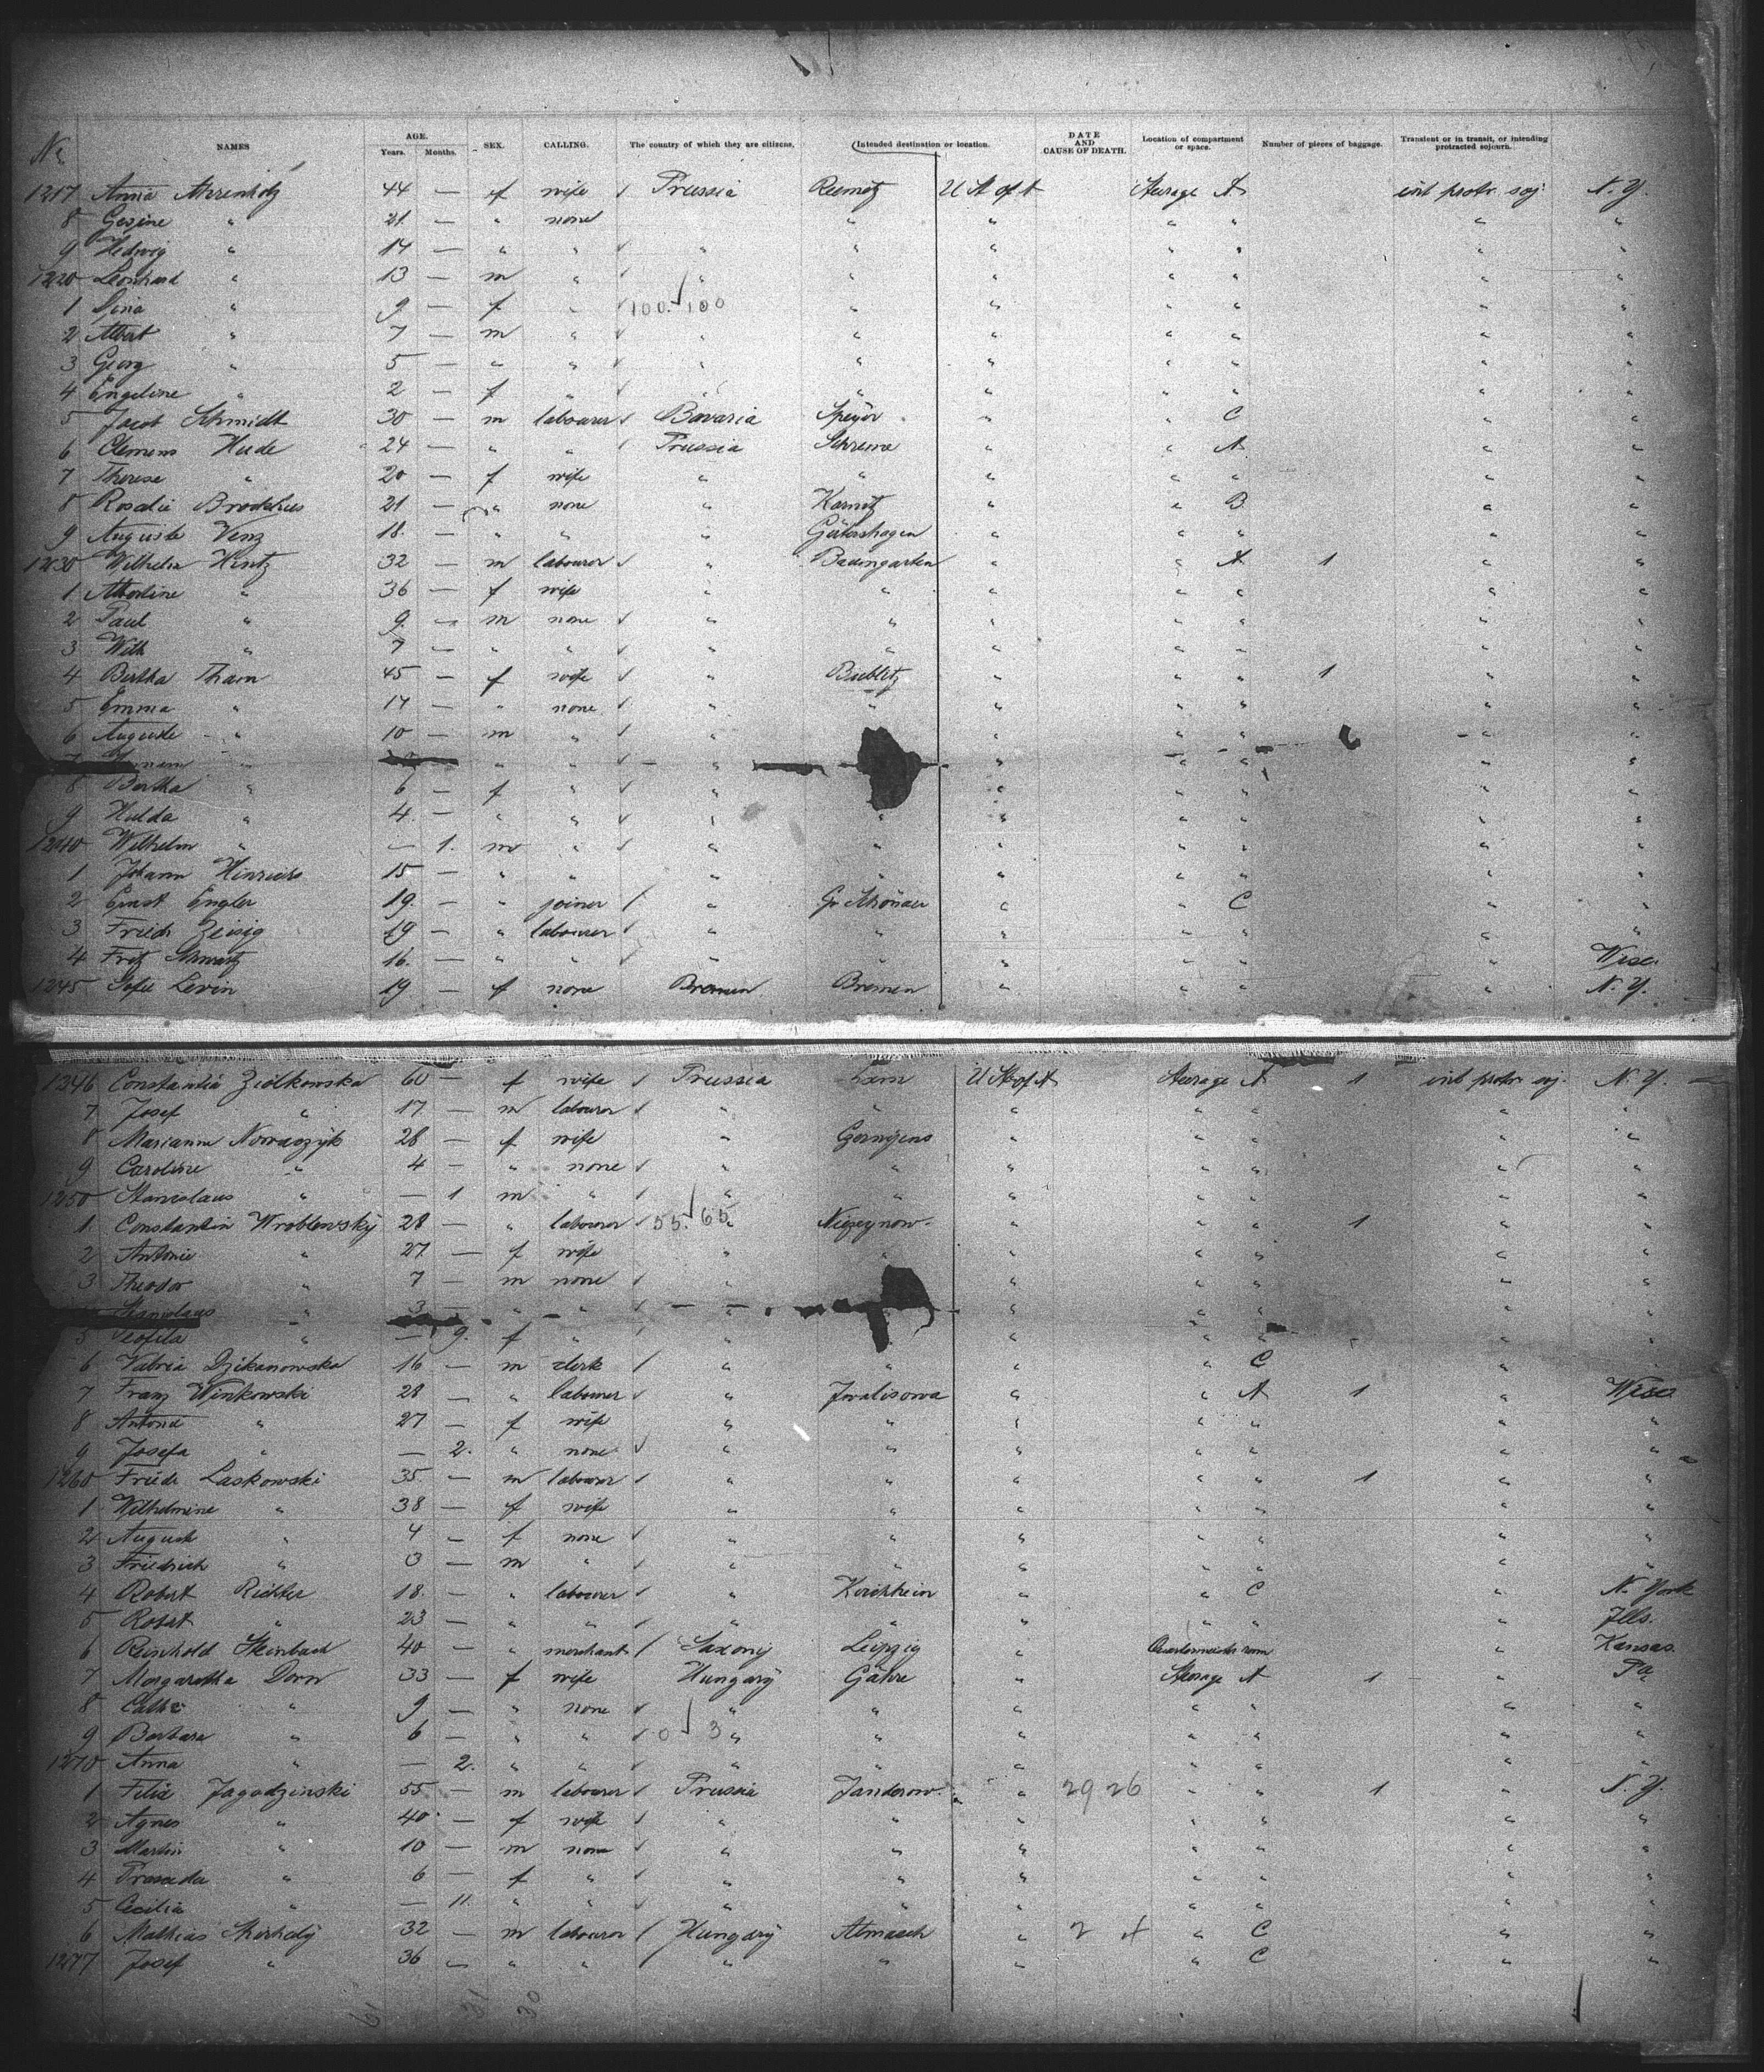 No. NAMES AGE. Years. Months. SEX. CALLING. The country of which they are citizens. Intended destination or location. DATE AND CAUSE OF DEATH. Location of compartment or space. Number of pieces of baggage. Transient or in transit, or intending protracted sojourn.
1217 Anna Ahrenholz 44 — f wife Prussia U St of A Steerage A int protr. soj N. Y.
8 Gesine " 21 — " none " " " " " " "
9 Hedwig " 14 — " " " " " " " " "
1220 Leonhard " 13 — m " " " " " " " "
1 " 9 — f " 100. 100 " " " " " "
2 Albert " 7 — m " " " " " " " "
3 Georg " 5 — " " " " " " " " "
4 Engeline " 2 — f " " " " " " " "
5 Jacob Schmidt 30 — m labourer Bavaria Speyer " " C " "
6 Clemens Hude 24 — " " Prussia " " A " "
7 Therese " 20 — f wife " " " " " " "
8 Rosalie 21 — " none " " " B " "
9 Auguste Venz 18. — " " " " " " " "
1230 Wilhelm Hintz 32 — m labourer " Baumgarten " " A 1 " "
1 Albertine " 36 — f wife " " " " " " "
2 Paul " 9. — m none " " " " " " "
3 Wilh " 7 — " " " " " " " " "
4 Bertha Tham 45 — f wife " Bublitz " " " 1 " "
5 Emma " 14 — " none " " " " " " "
6 Auguste " 10 — m " " " " " " "
7 " " " " " " " " "
8 Bertha " 6 — f " " " " " " "
9 Hulda " 4 — " " " " " " " " "
1240 Wilhelm " — 1. m " " " " " " " "
1 Johann Hinrichs 15 — " " " " " " " " "
2 Ernst Engler 19. — " joiner " Gr Schönau " " C " "
3 Friedr Zeisig 19 — " labourer " " " " " " "
4 Fritz Schwartz 16. — " " " " " " " " Wisc.
1245 Sofie Levin 19 — f none Bremen Bremen " " " " N. Y.
1246 Constantia Ziolkowska 60 — f wife Prussia U St of A Steerage A 1 int protr. soj. N. Y.
7 Josef " 17 — m labourer " " " " " " "
8 Marianna Nowaczyk 28 — f wife " " " " " "
9 Caroline " 4 — " none " " " " " " "
1250 Stanislaus " — 1 m " " " " " " " "
1 Constantin Wroblewsky 28 — " labourer 55. 65 " " " " 1 " "
2 Antonie " 27. — f wife " " " " " " "
3 Theodor " 7 — m none " " " " " "
Stanislaus " 3 — " " " " " " "
5 Teofila " — 9. f " " " " " " "
6 Valria Dzikanowska 16 — m clerk " " " " C " "
7 Franz Winkowski 28 — " labourer " " " A 1 " Wisc
8 " 27 — f wife " " " " " " "
9 Josefa " — 2. " none " " " " " " "
1260 Friedr Laskowski 35. — m labourer " " " " " 1 " "
1 Wilhelmine " 38 — f wife " " " " " " "
2 August " 4 — f none " " " " " " "
3 Friedrich " 3 — m " " " " " " " "
4 Robert Richter 18. — " labourer " Kirchheim " " C " N. York
5 Robert " 23 — " " " " " " " " Ills.
6 Reinhold Steinbach 40 — " merchant Saxony Leipzig " " Kansas
7 Margaretha Dorn 33 — f wife Hungary " Steerage A 1 " Pa
8 Cath " 9 — " none " " " " " " "
9 Barbara " 6 — " " 0 3 " " " " " " "
1270 Anna " — 2. " " " " " " " " "
1 Felix Jagodzinski 55 — m labourer Prussia Janderow. " 29 26 " " 1 " N. Y.
2 Agnes " 40 — f wife " " " " " " "
3 Martin " 10 — m none " " " " " " "
4 " 6 — f " " " " " " " "
5 Cecilia " — 11. " " " " " " " " "
6 Mathias 32 — m labourer Hungary Almasch " 2 " C " "
1277 Josef " 36 — " " " " " " C " "